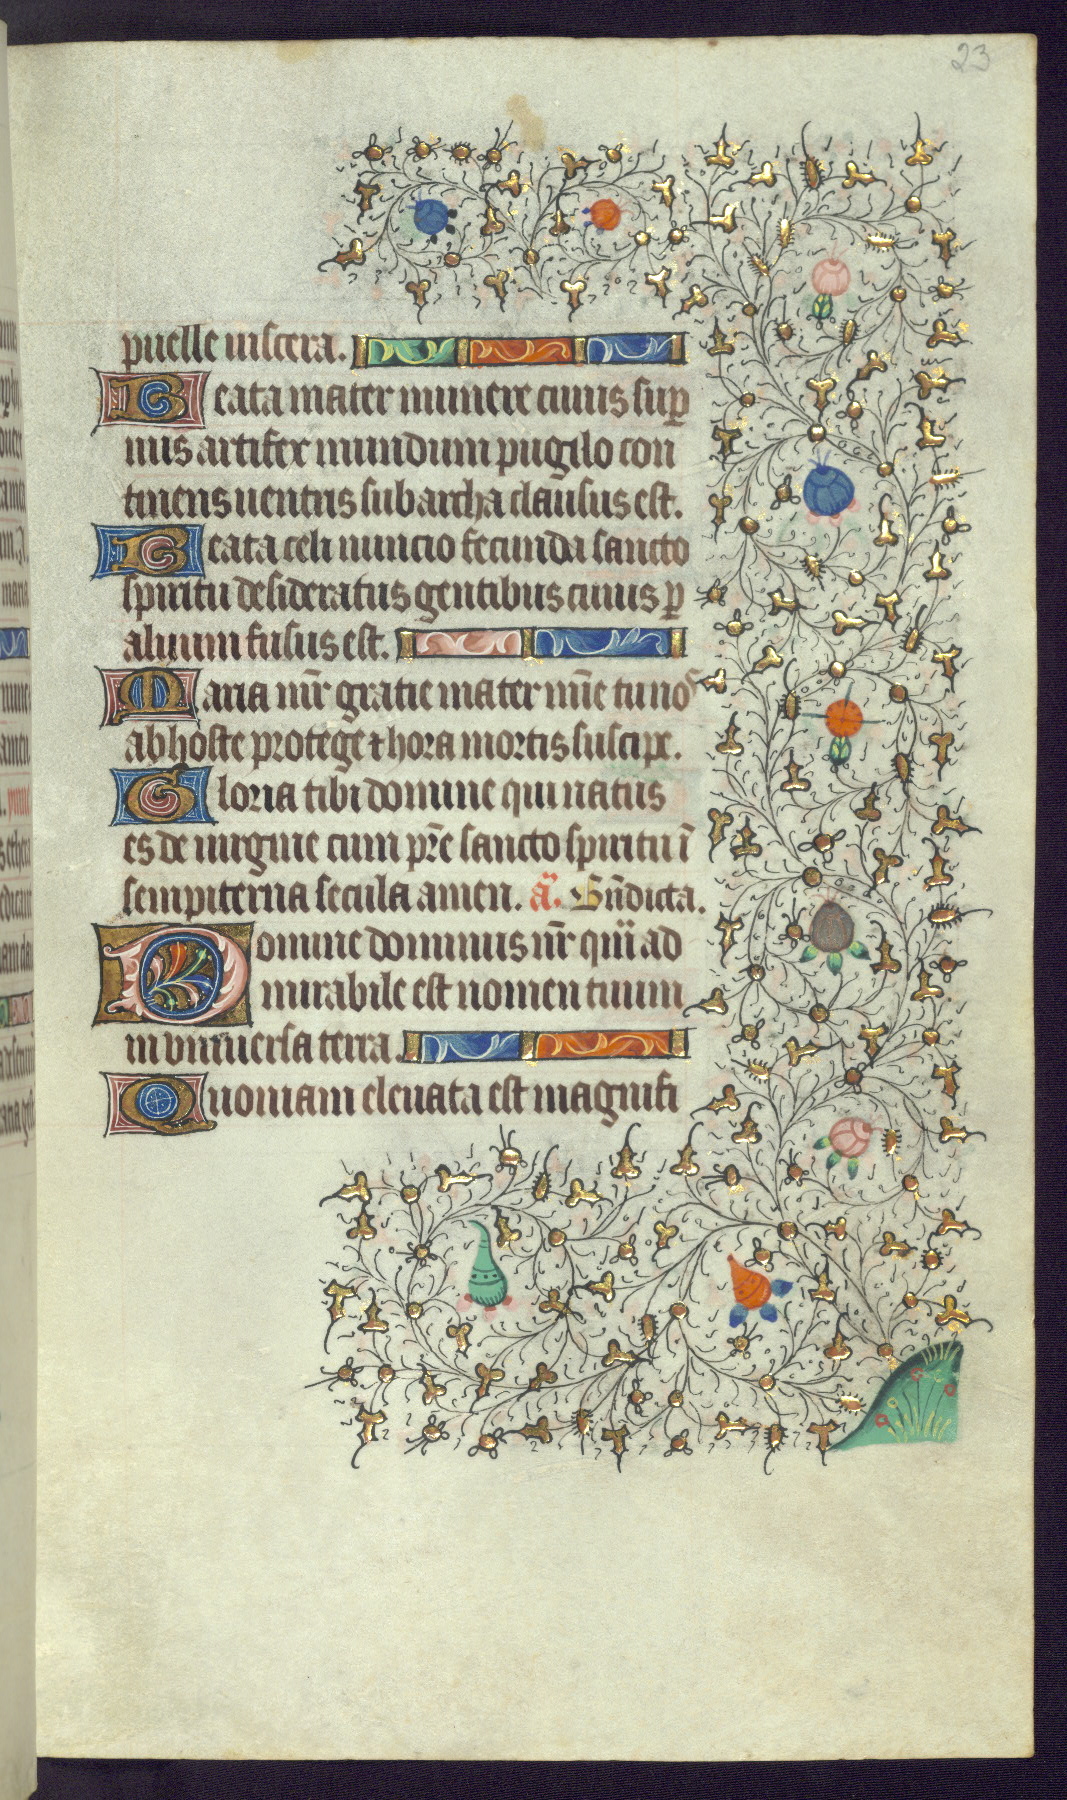 23
puelle viscera.
Beata mater munere cuius sup
nus artifex mundum pugilo con
tinens uentris sub archa clausus est.
Beata celi nuncio fecunda sancto
spiritu desideratus gentibus cuius p
aluum fusus est.
Maria mr̄ gratie mater mīe tu nos
ab hoste protege ⁊ hora mortis suscipe.
Gloria tibi domine qui natus
es de uirgine cum pr̄e sancto spiritu ī
sempiterna secula amen. ā. Bn̄dicta.
Domine dominus nr̄ quā ad
mirabile est nomen tuum
in vniuersa terra.
Quoniam eleuata est magnifi